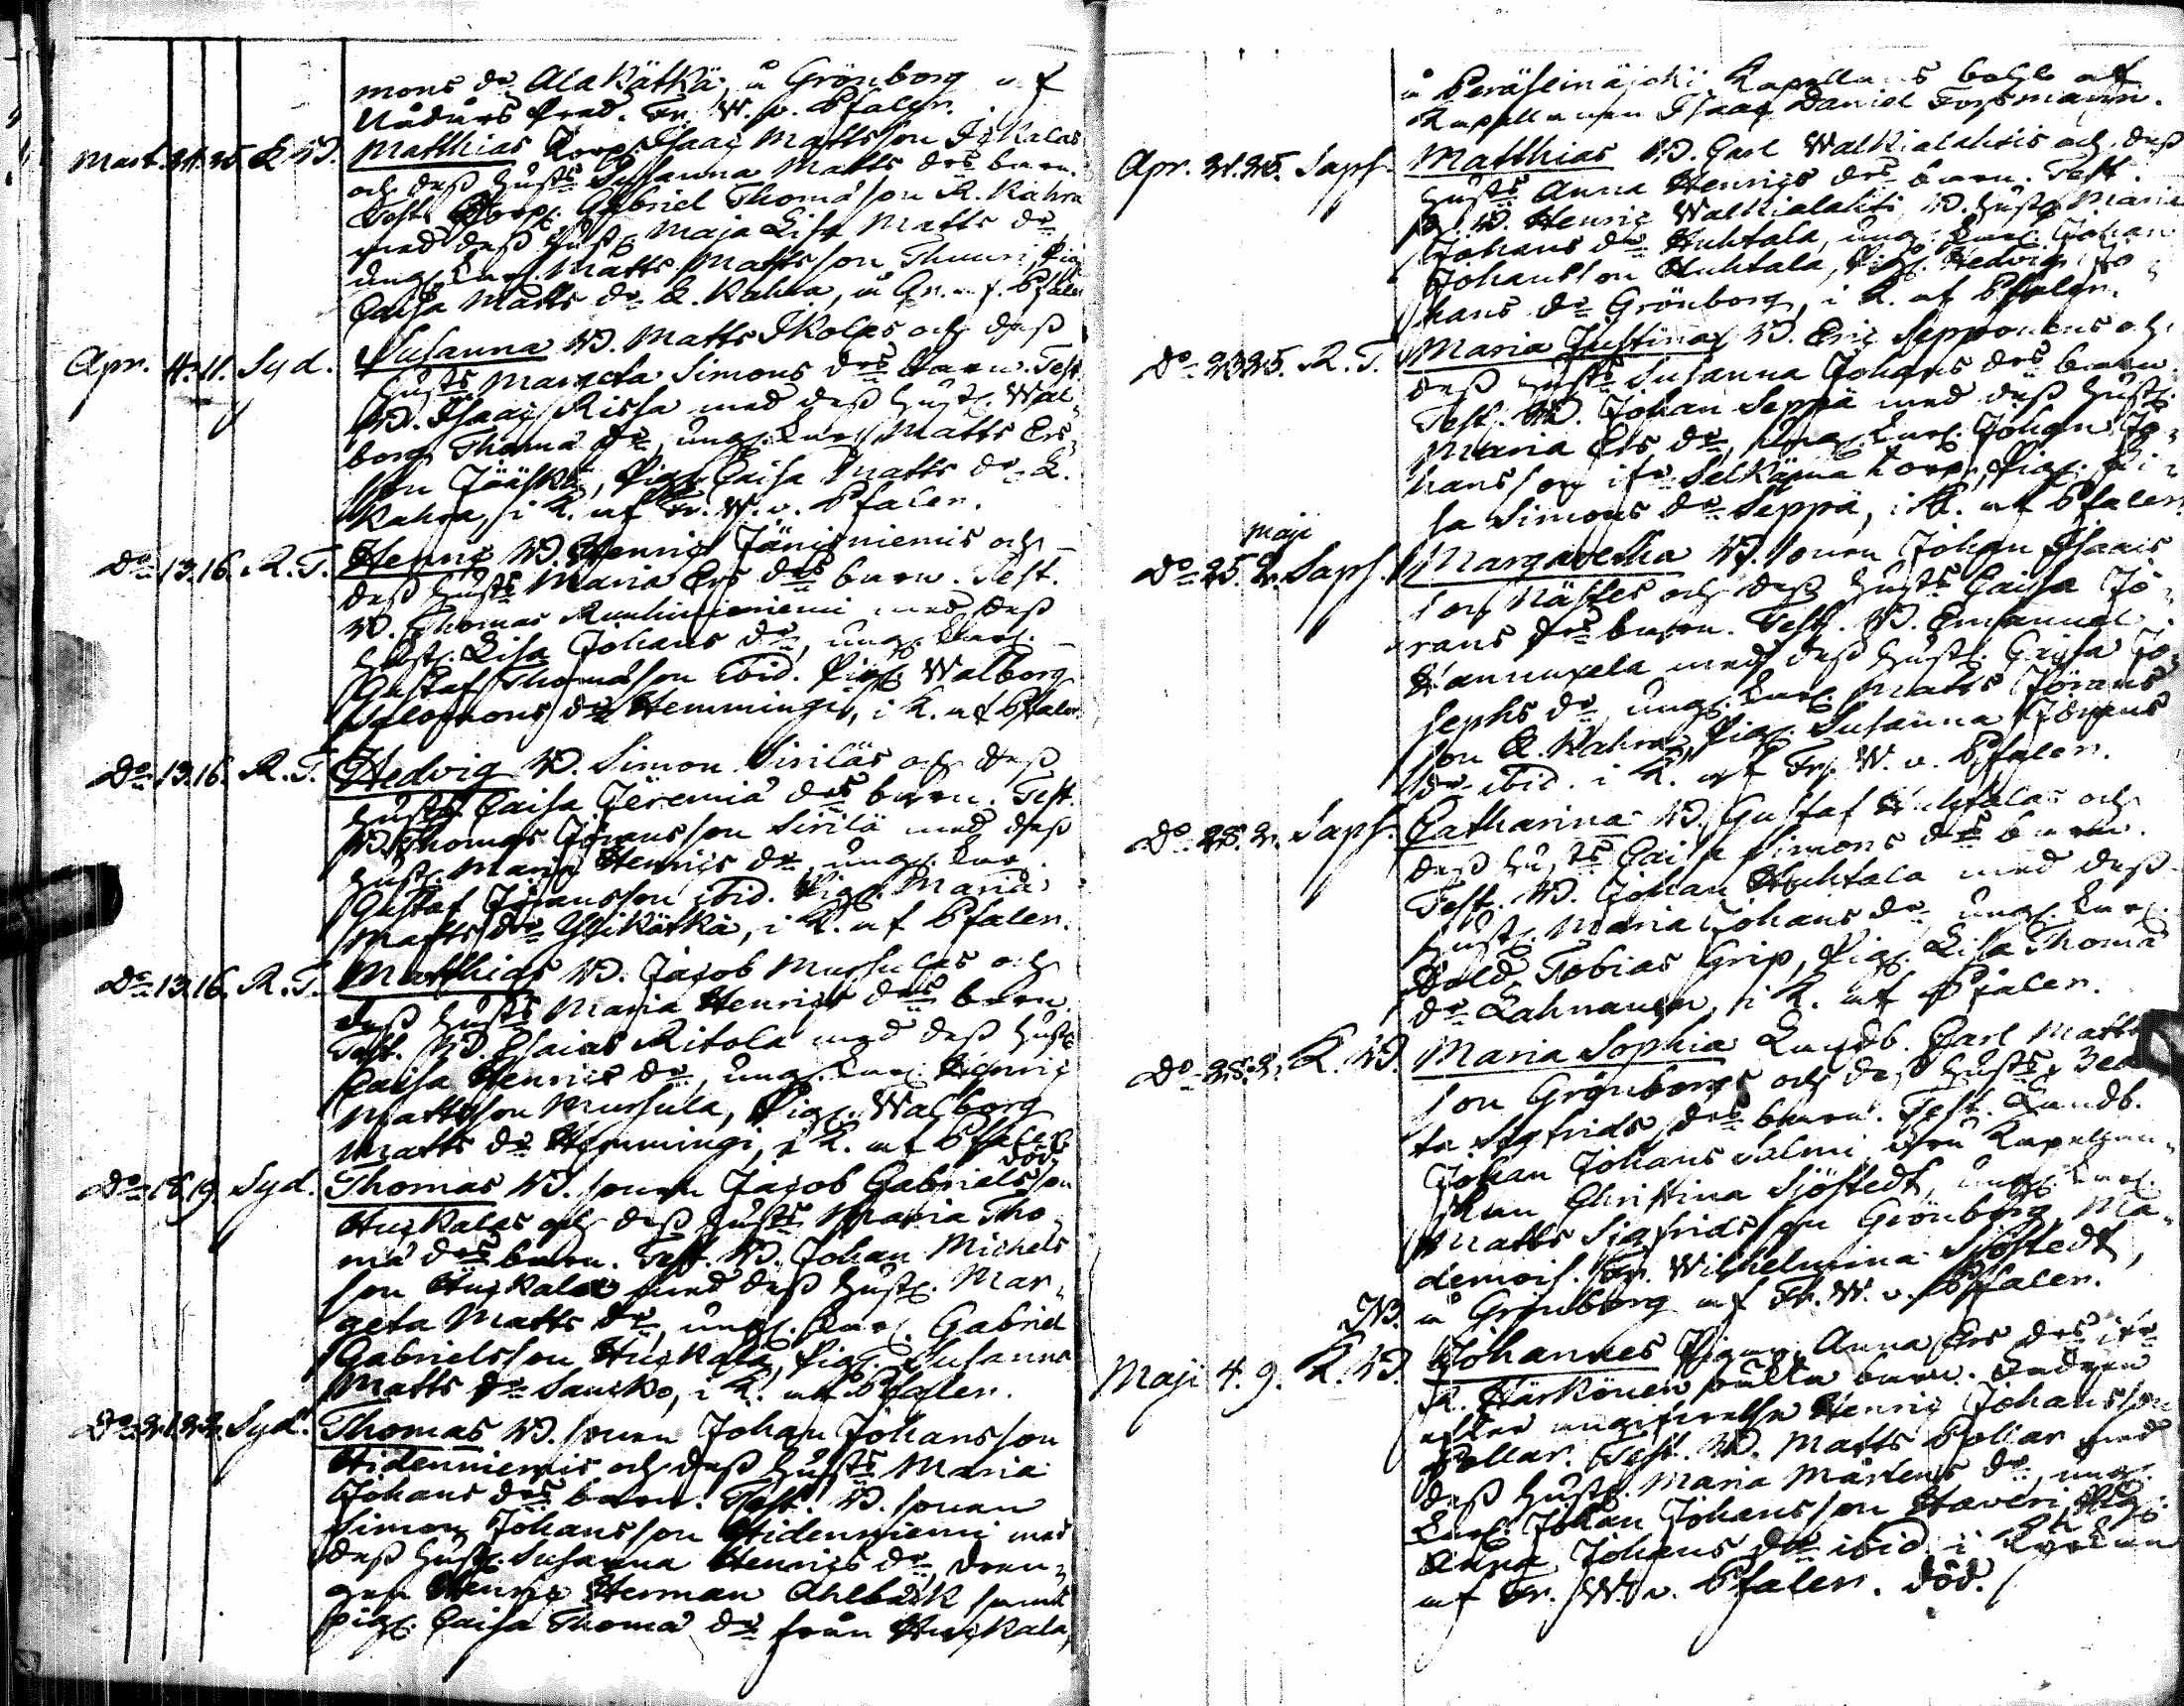 mons dr Alakätkä, å Grönborg af
Nådårs Pred. Fr. W. v. Pfaler.
Mart. 21. 25. L. W. Matthias Torp. Isaac Mattsson Iskalas
och dess hust: Susanna Matts drs barn.
Test. Torp. Gabriel Thomasson R. Kahra
med dess hust. Maja Lisa Matts dr
ung. karl. Matts Mattsson Thuuri, Pig.
Caisa Matts dr L. Kahra, å Gr. af Pfaler
Apr. 4. 11. Syd. Susanna B. Matts Skolas och dess
hust: Margeta Simons drs barn. Test.
B. Isaac Rissa med dess hust. Wal-
borg Thomae dr, ung. karl Matts Ers-
son Jääskä, Pig. Caisa Matts dr L.
Kahra, i K. af Fr. W. v. Pfaler.
Do 13. 16. R. T. Henric B. Henric Jänisniemis och
dess hust: Maria Ers drs barn. Test.
B. Thomas med dess
hust. Lisa Johans dr, ung. karl.
Gustaf Thomasson ibid. Pig. Walborg
Salomons dr Hemmingi, i K. af Pfaler
Do 13. 16. R. T. Hedvig B. Simon Siriläs och dess
hust: Caisa Jeremiae drs barn. Test.
B. Thomas Jöransson Sirilä med dess
hust. Maria Henrics dr, ung. kar.
Gustaf Jöransson ibid. Pig. Maria
Matts dr Ylikätkä, i K. af Pfaler.
Do 13. 16. R. T. Matthias B. Jacob Mursulas och
dess hust: Maria Henrics drs barn.
Test. B. Esaias Ritola med dess hust.
Caisa Henrics dr, ung. karl. Henric
Mattsson Mursula, Pig. Walborg
Matts dr Hemmingi, i K. af Pfaler.
död.
Do 18. 19. Syd. Thomas B. sonen Jacob Gabrielsson
Huckalas och dess hust: Maria Tho-
mae drs barn. Test. B. Johan Michels
son Huckala med dess hust. Mar-
geta Matts dr, ung. karl. Gabriel
Gabrielsson Huckala, Pig. Susanna
Matts dr Saucko, i K. af Pfaler.
Do 21. 22. Syd. Thomas B. sonen Johan Johansson
Hidenniemis och dess hust: Maria
Johans drs barn. Test. B. sonen
Simon Johansson Hidenniemi med
dess hust. Susanna Henrics dr, dren-
gen Henric Herman Ahlbäck samt
pig. Caisa Thomae dr från Huckala,
å Peräseinäjoki Kapellans bohle af
Kapellanen Isaac Daniel Forsmann.
Apr. 21. 25. Saps. Matthias B. Carl Walkialahtis och dess
hust: Anna Henrics drs barn. Test.
B. Henric Walkialahti, B. hust. Maria
Johans dr Huhtala, ung. karl. Johan
Johansson Huhtala, Pig. Hedvig Jo-
hans dr Grönborg, i K. af Pfaler.
Do 23. 25. R. T. Maria Justina B. Eric Sepponens och
dess hust: Susanna Johans drs barn.
Test. B. Johan Seppä med dess hust.
Maria Ers dr, ung. karl. Johan Jo-
hansson ifr. Selkämä torp, Pig.
sa Simons dr Seppä, i K. af Pfaler
Maji
Do 25. 2. Saps. Margaretha B. sonen Johan Isaacs
son Näses och dess hust: Caisa Jö-
rans drs barn. Test. B. Emanuel
med dess hust. Caisa Jo-
sephs dr, ung. karl. Matts Jörans
son L. Kahra, Pig. Susanna Jörans
dr ibid. i K. af Fr. W. v. Pfaler.
Do 28. 2. Saps. Catharina B. Gustaf Huhtalas och
dess hust: Caisa Simons drs barn.
Test. B. Johan Huhtala med dess
hust. Maria Johans dr, ung. karl.
Sold. Tobias Grip, Pig. Lisa Thomae
dr Lahnanen, i K. af Pfaler.
Do 28. 2. K. W. Maria Sophia Landb. Carl Matts
son Grönborgs och dess hust: Bea-
ta Sigfrids drs barn. Test. Landb.
Johan Johans Salmi, Fru Kapellan-
skan Christina Sjöstedt, ung. karl.
Matts Sigfridsson Grönborg, Ma-
demois. Wilhelmina Sjöstedt,
NB. å Grönborg af Fr. W. v. Pfaler.
Maji 4. 9. K. W. Johannes Pigan Anna Ers drs ifr.
R. Härkönen oäkta barn. Fadren
efter angifvelse Henric Johansson
Pollar. Test. B. Matts Pollar med
dess hust. Maria Mårtens dr, ung.
karl. Johan Johansson Haveri, Pig.
Anna Johans dr ibid. i Kyrkan
af Fr. W. v. Pfaler. död.